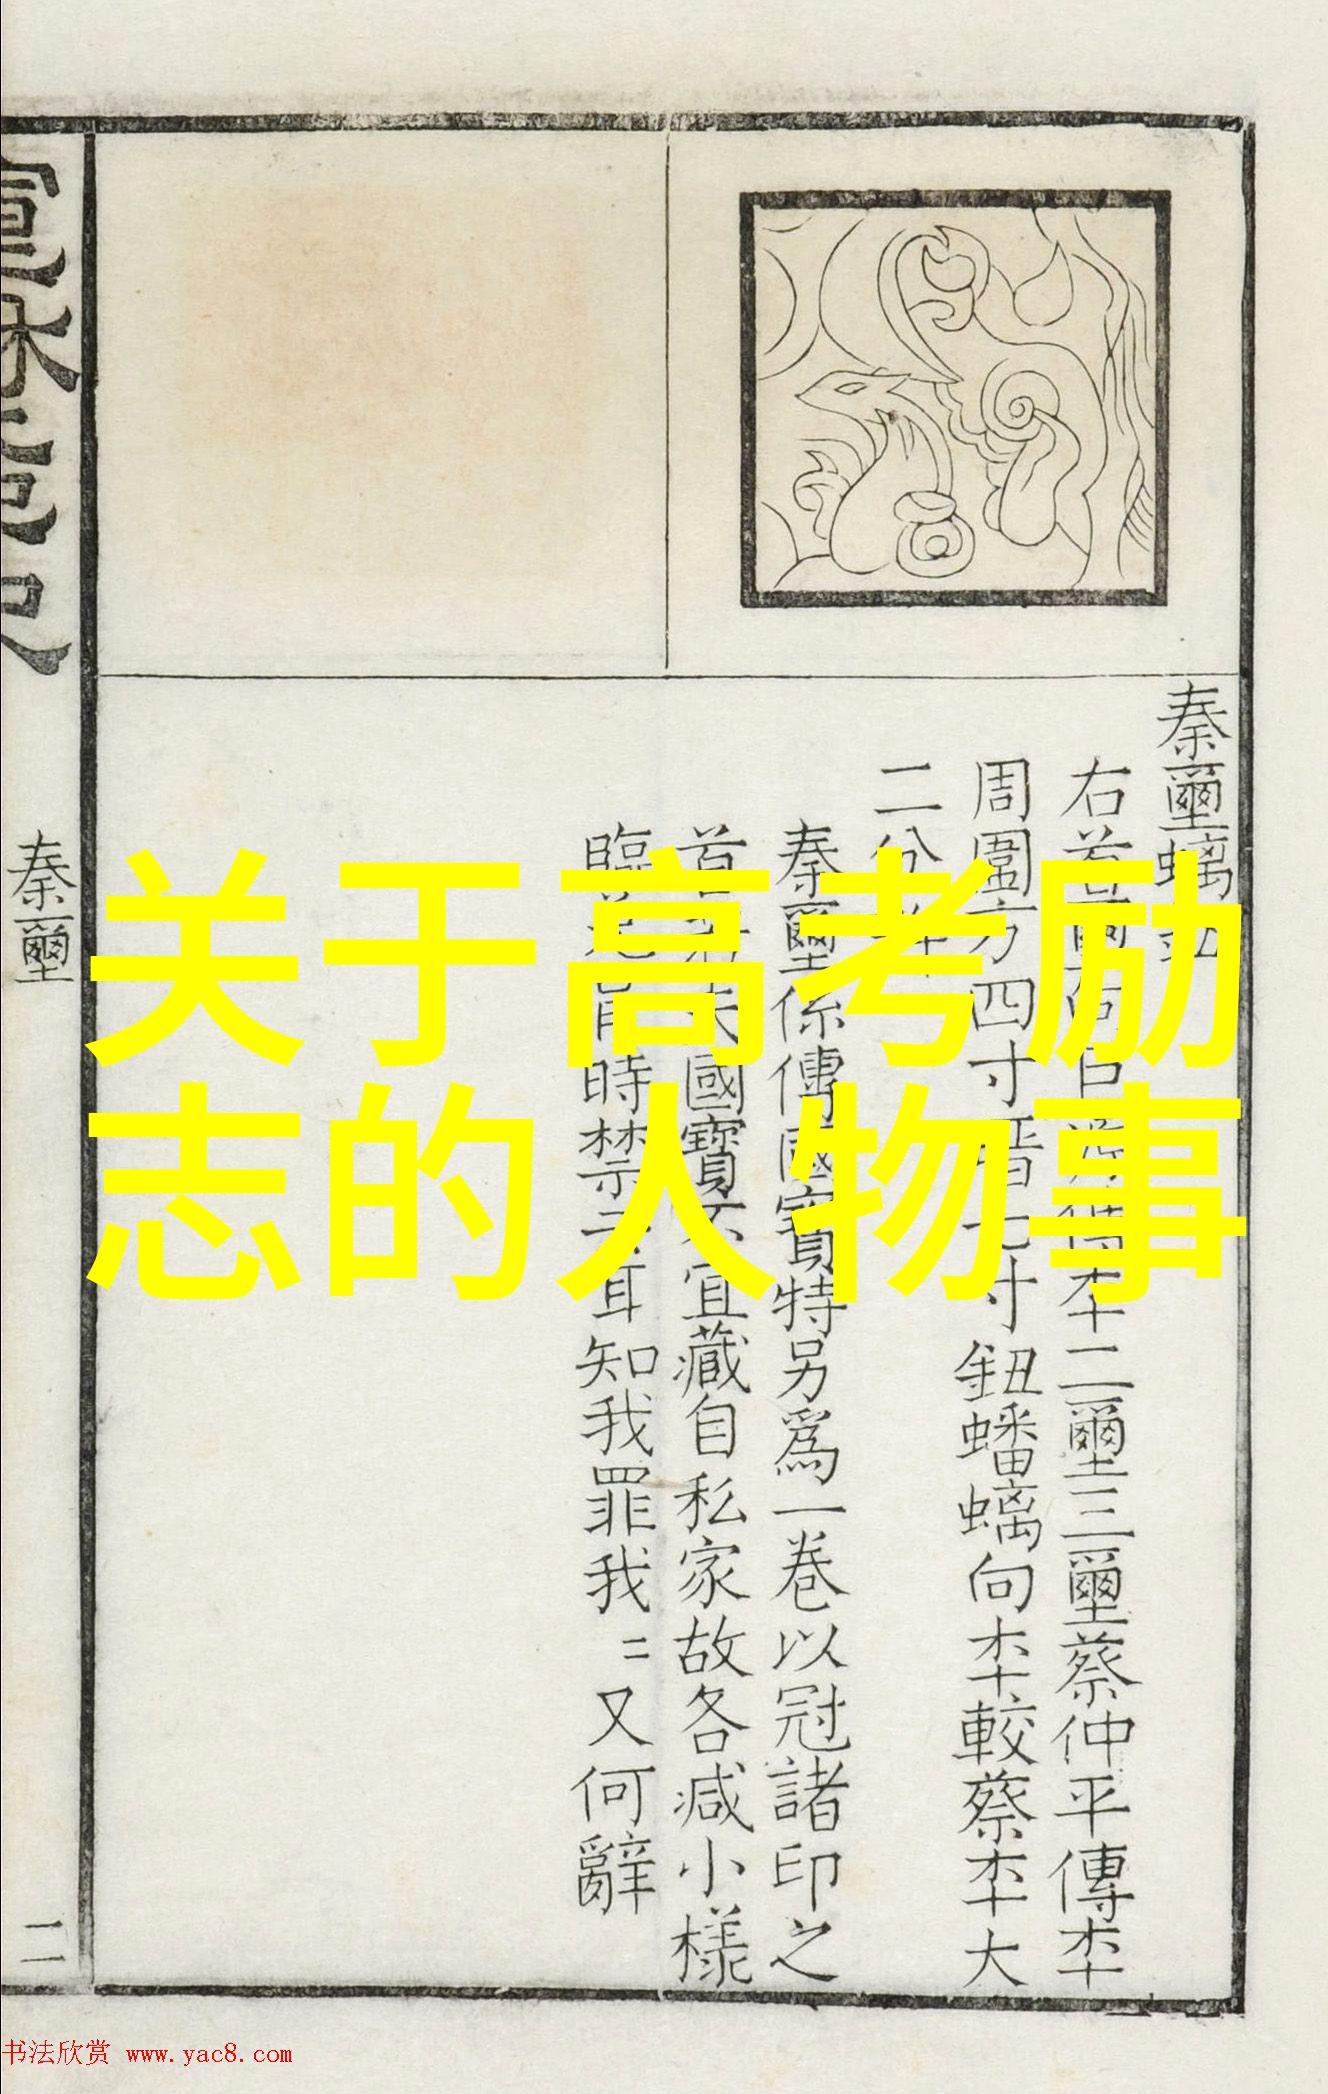 关于高考励
志的人物事
秦璽螭
右 二璽三璽蔡仲平傳本
周圍方四寸 七寸鈕蟠螭向本較蔡本大
二分
秦璽係傳國寶特另爲一卷以冠諸印之
首 國寶不宜藏自私家故各減小樣
臨 時禁 耳知我罪我〻又何辭
秦璽
二
书法欣赏 www.yac8.com